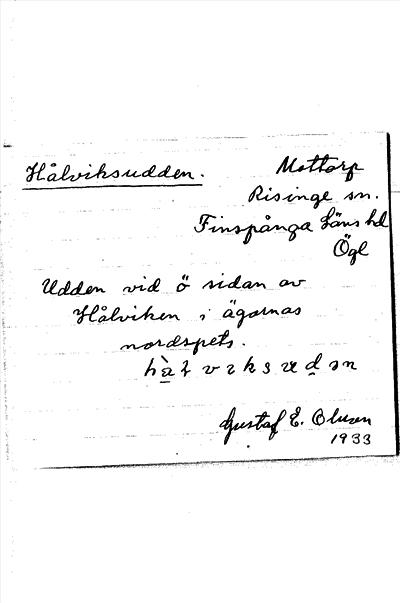 Hålviksudden.
Mottorp
Risinge sn.
Finspånga läns hd
Ögl
Udden vid ö sidan av
Hålviken i ägornas
nordspets.
Gustaf E. Olsson
1933